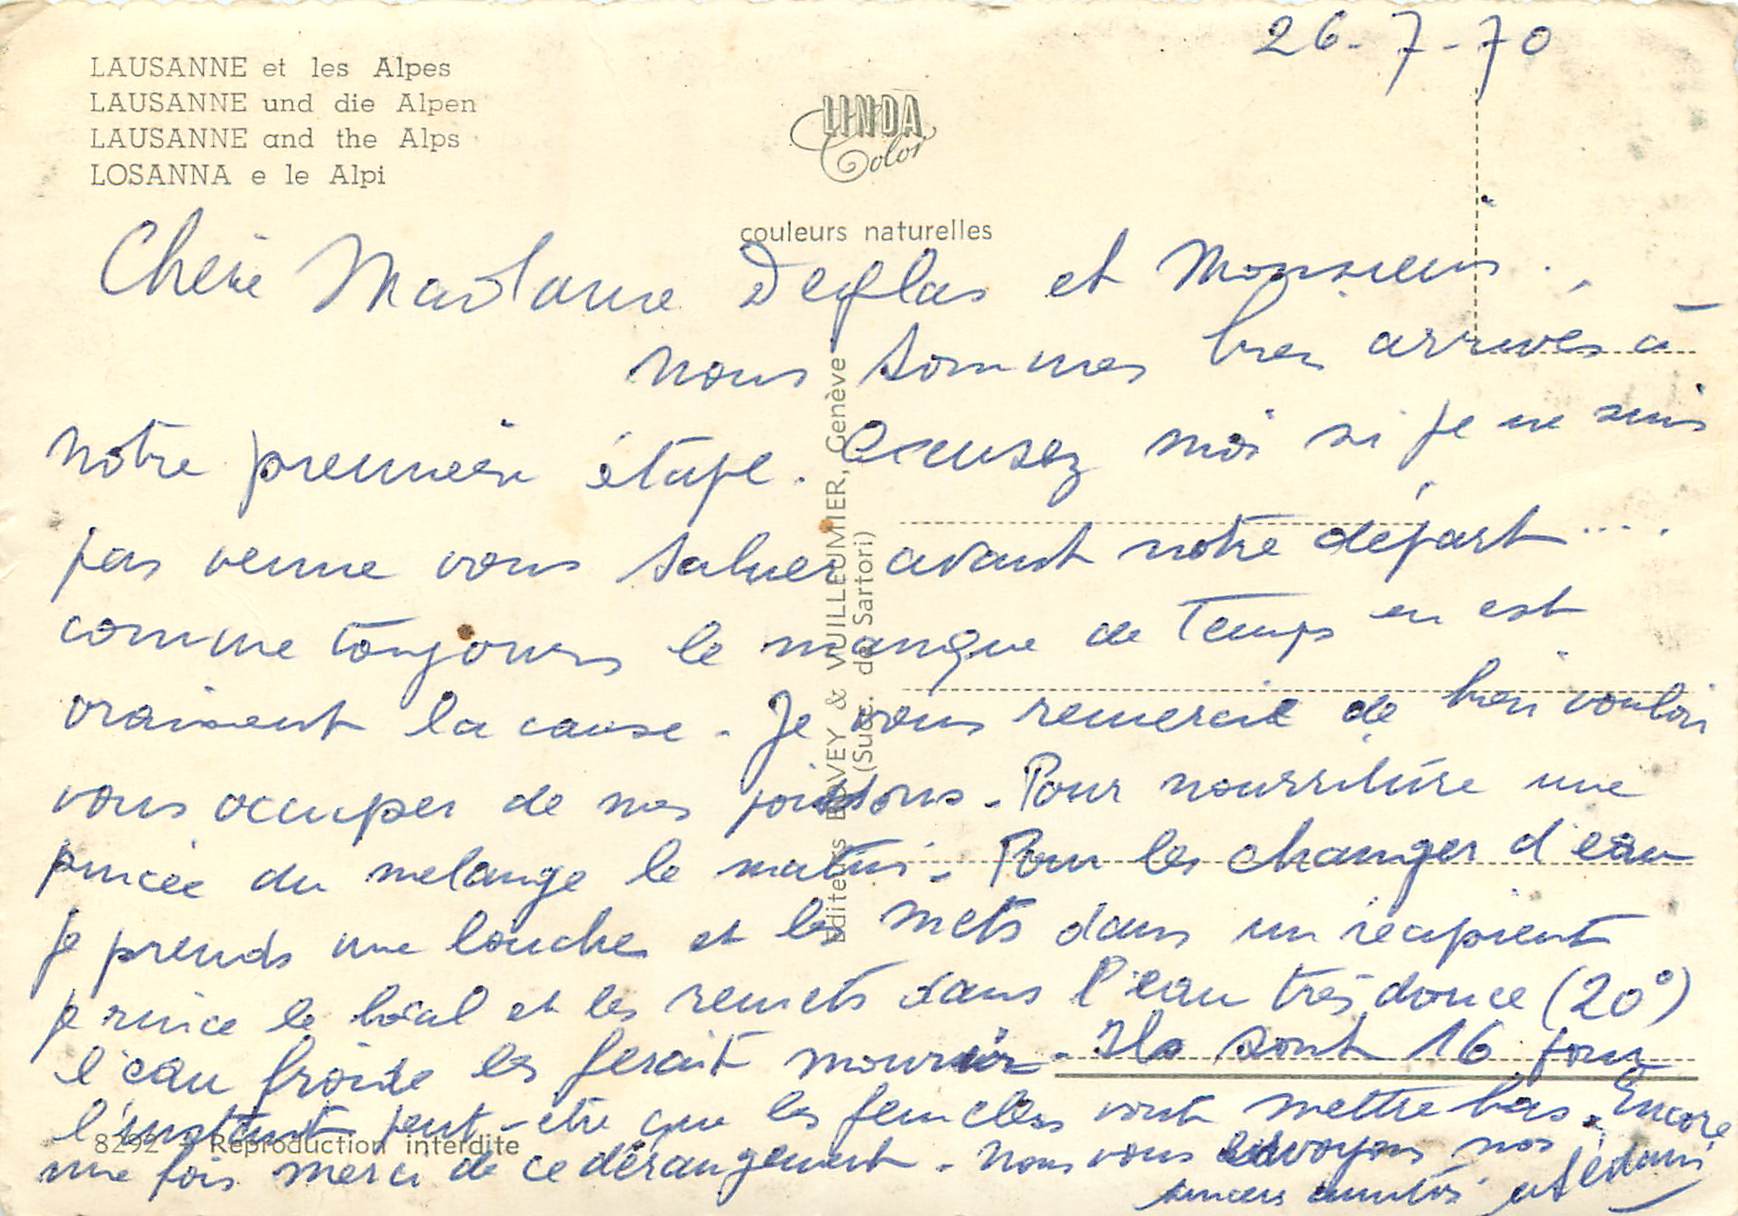 26-7-70
LAUSANNE et les Alpes
LAUSANNE und die Alpen
LAUSANNE and the Alps
LOSANNA e le Alpi
LINDA
Color
couleurs naturelles
Chère Madame et Monsieur.
nous sommes bien arrivés à
notre première étape. Excusez moi si je ne suis
pas venue vous saluer avant notre départ ....
comme toujours le manque de temps en est
vraiment la cause. Je vous remercie de bien vouloir
vous occuper de nos poissons. Pour nourriture une
pincée du melange le matin. Pour les changer d'eau
je prends une louche et les mets dans un récipient
je rince le bocal et les remets dans l'eau très douce (20°)
l'eau froide les ferait mourir. Ils sont 16 pour
l'instant peut-être que les femelles vont mettre bas. Encore
une fois merci de ce dérangement. Nous vous envoyons nos
sincères amitiés
Editeurs BOVEY & VUILLEUMIER, Genève
(Succ. de Sartori)
8292 - Reproduction interdite